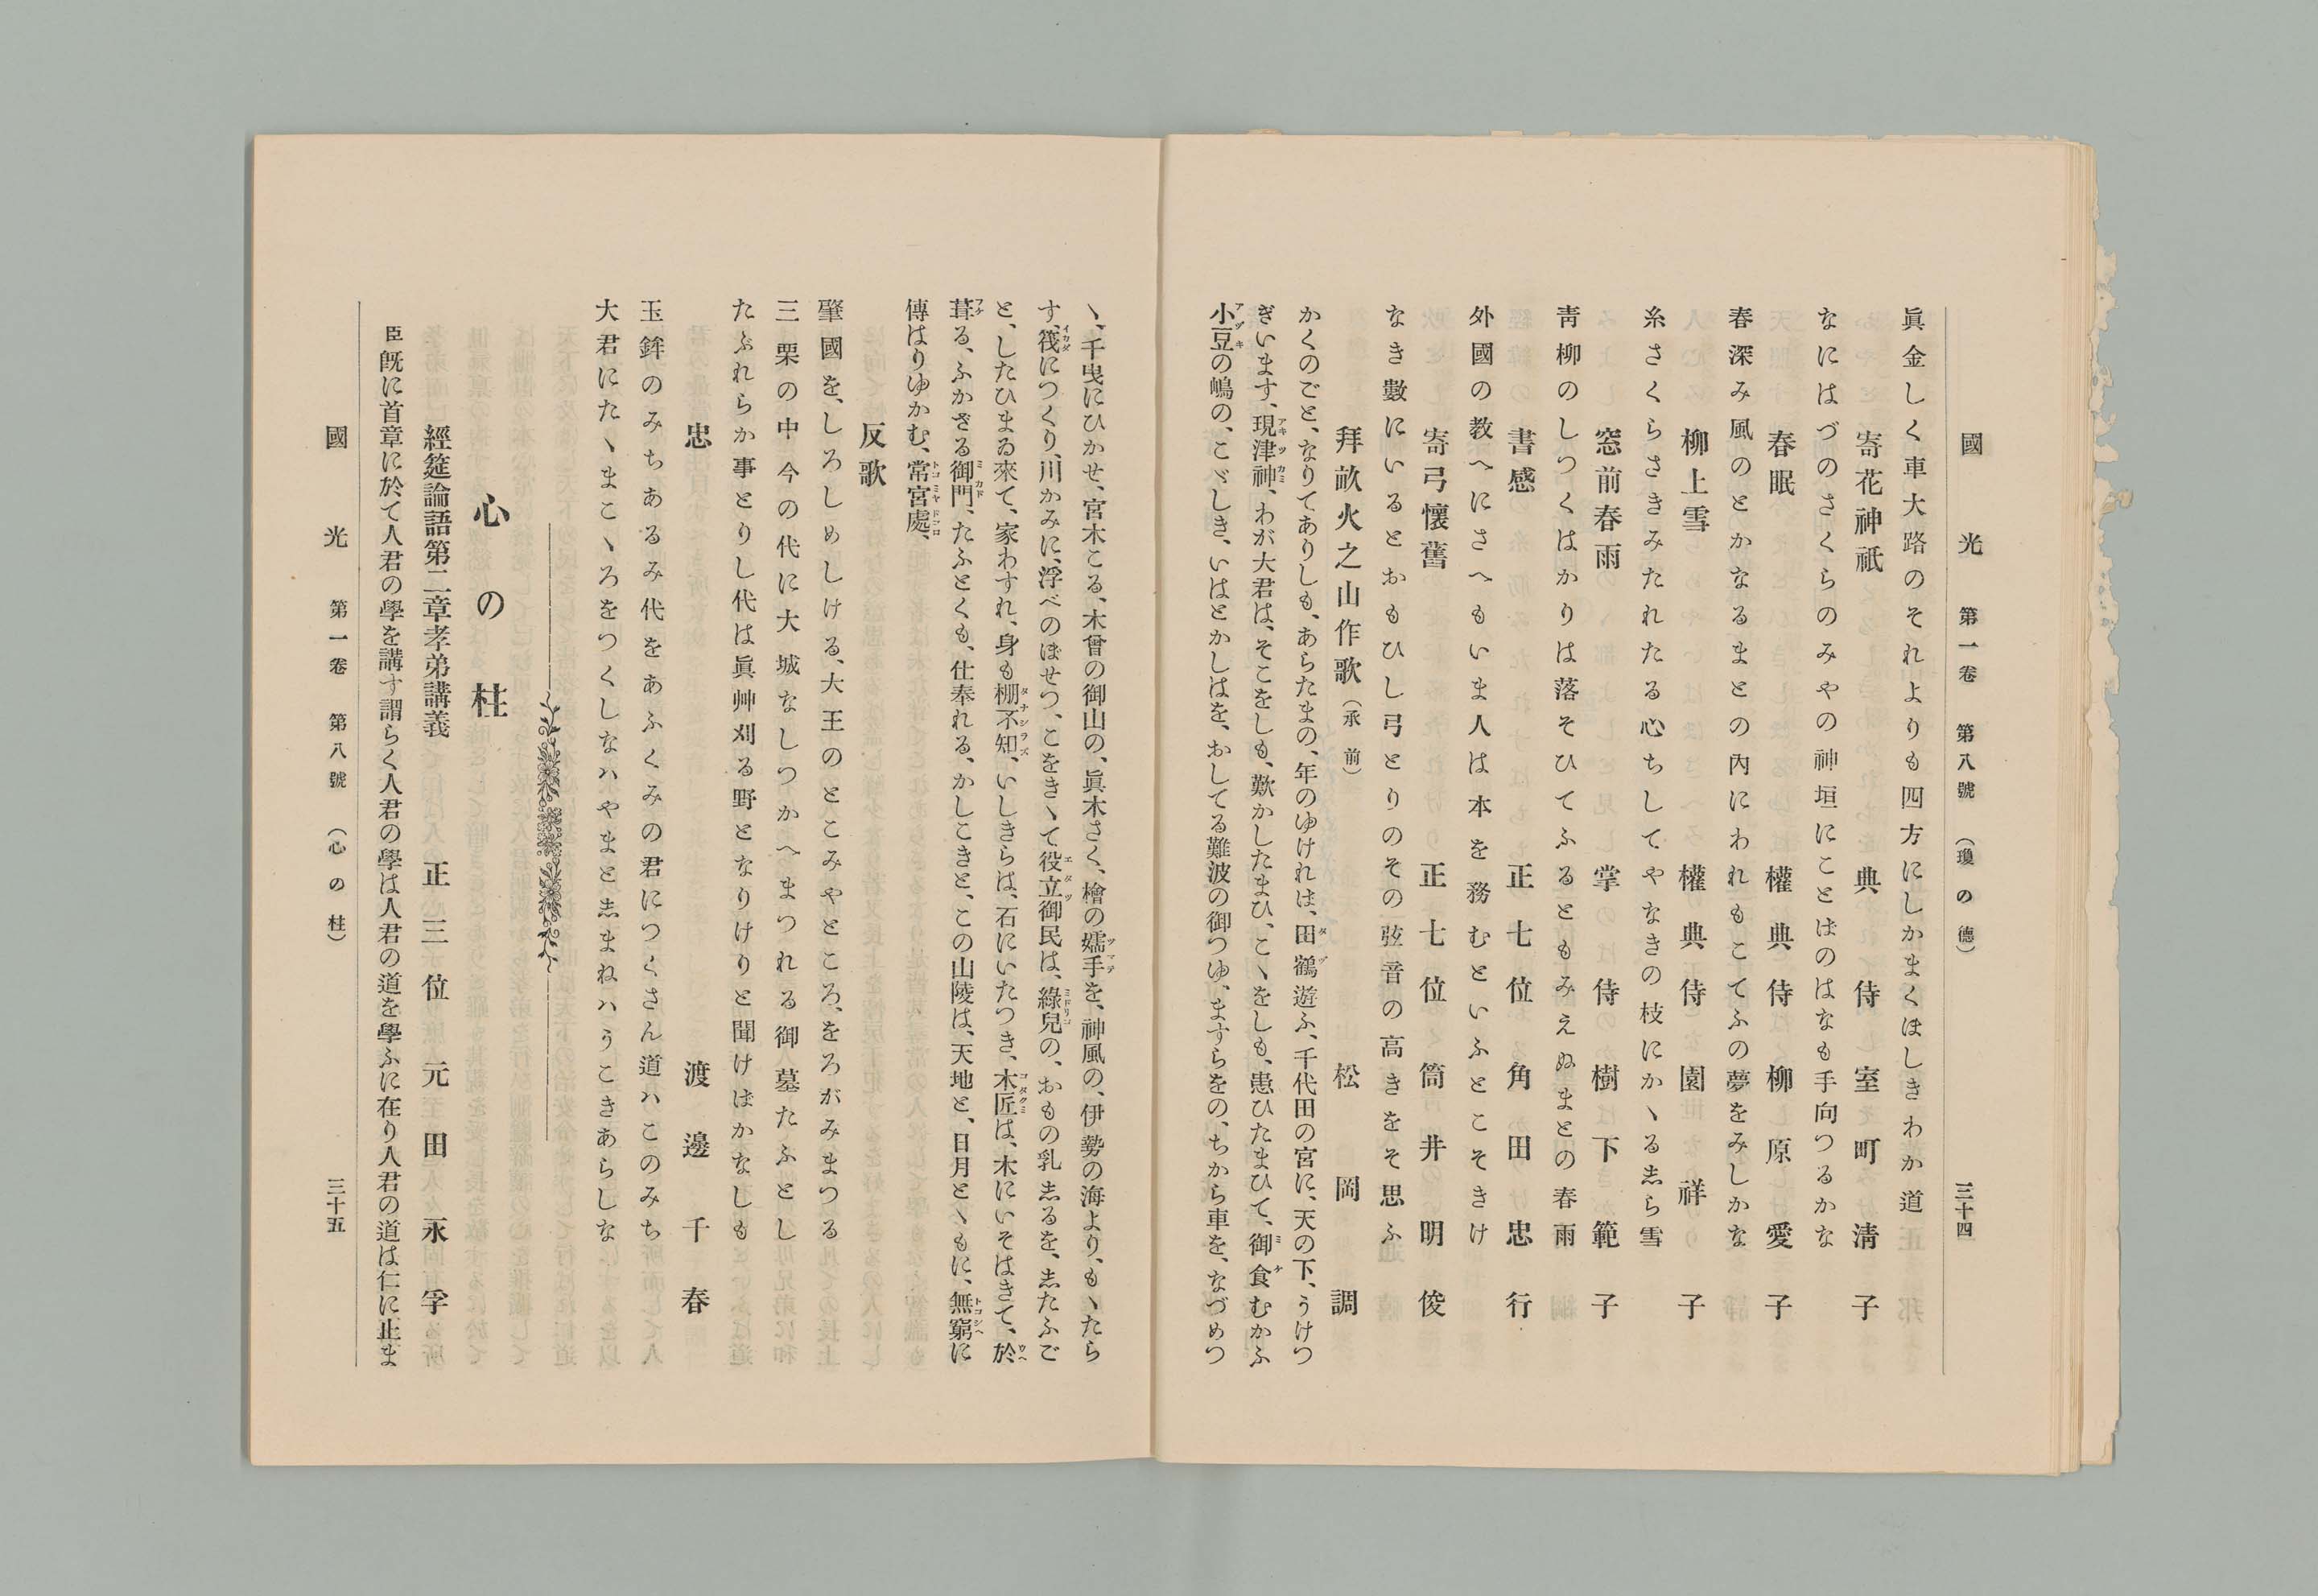 國光 第一卷 第八號 （瓊の德） 三十四
眞金しく車大路のそれよりも四方にしかまくほしきわか道
寄花神祇 典侍 室町清子
なにはづのさくらのみやの神垣にことはのはなも手向つるかな
春眠 權典侍 柳原愛子
春深み風のとかなるまとの內にわれもこてふの夢をみしかな
柳上雪 權典侍 園祥子
糸さくらさきみたれたる心ちしてやなきの枝にかヽる志ら雪
窓前春雨 掌侍 樹下範子
靑柳のしつくはかりは落そひてふるともみえぬまとの春雨
書感 正七位 角田忠行
外國の敎へにさへもいま人は本を務むといふとこそきけ
寄弓懷舊 正七位 筒井明俊
なき數にいるとおもひし弓とりのその弦音の高きをそ思ふ
拜畝火之山作歌（承前） 松岡調
かくのごと、なりてありしも、あらたまの、年のゆけれは、田鶴遊ふ、千代田の宮に、天の下、うけつ
ぎいます、現津神、わが大君は、そこをしも、歎かしたまひ、こヽをしも、患ひたまひて、御食むかふ
小豆の嶋の、こゞしき、いはとかしはを、おしてる難波の御つゆ、ますらをの、ちから車を、なづめつ
ヽ、千曳にひかせ、宮木こる、木曾の御山の、眞木さく、檜の嬬手を、神風の、伊勢の海より、もヽたら
す、筏につくり、川かみに、浮べのほせつ、こをきヽて役立御民は、綠兒の、おもの乳志るを、志たふご
と、したひまゐ來て、家わすれ、身も棚不知、いしきらは、石にいたつき、木匠は、木にいそはきて、於
葺る、ふかさる御門、たふとくも、仕奉れる、かしこきと、この山陵は、天地と、日月とヽもに、無窮に
傳はりゆかむ、常宮處、
反歌
肇國を、しろしめしける、大王のとこみやところ、をろがみまつる
三栗の中今の代に大城なしつかへまつれる御墓たふとし
たぶれらか事とりし代は眞艸刈る野となりけりと聞けはかなしも
忠 渡邊千春
玉鉾のみちあるみ代をあふくみの君につくさん道ハこのみち
大君にたヽまこヽろをつくしなハやまと志まねハうこきあらしな
心の柱
經筵論語第二章孝弟講義 正三位 元田永孚
臣既に首章に於て人君の學を講す謂らく人君の學は人君の道を學ふに在り人君の道は仁に止ま
國光 第一卷 第八號 （心の柱） 三十五